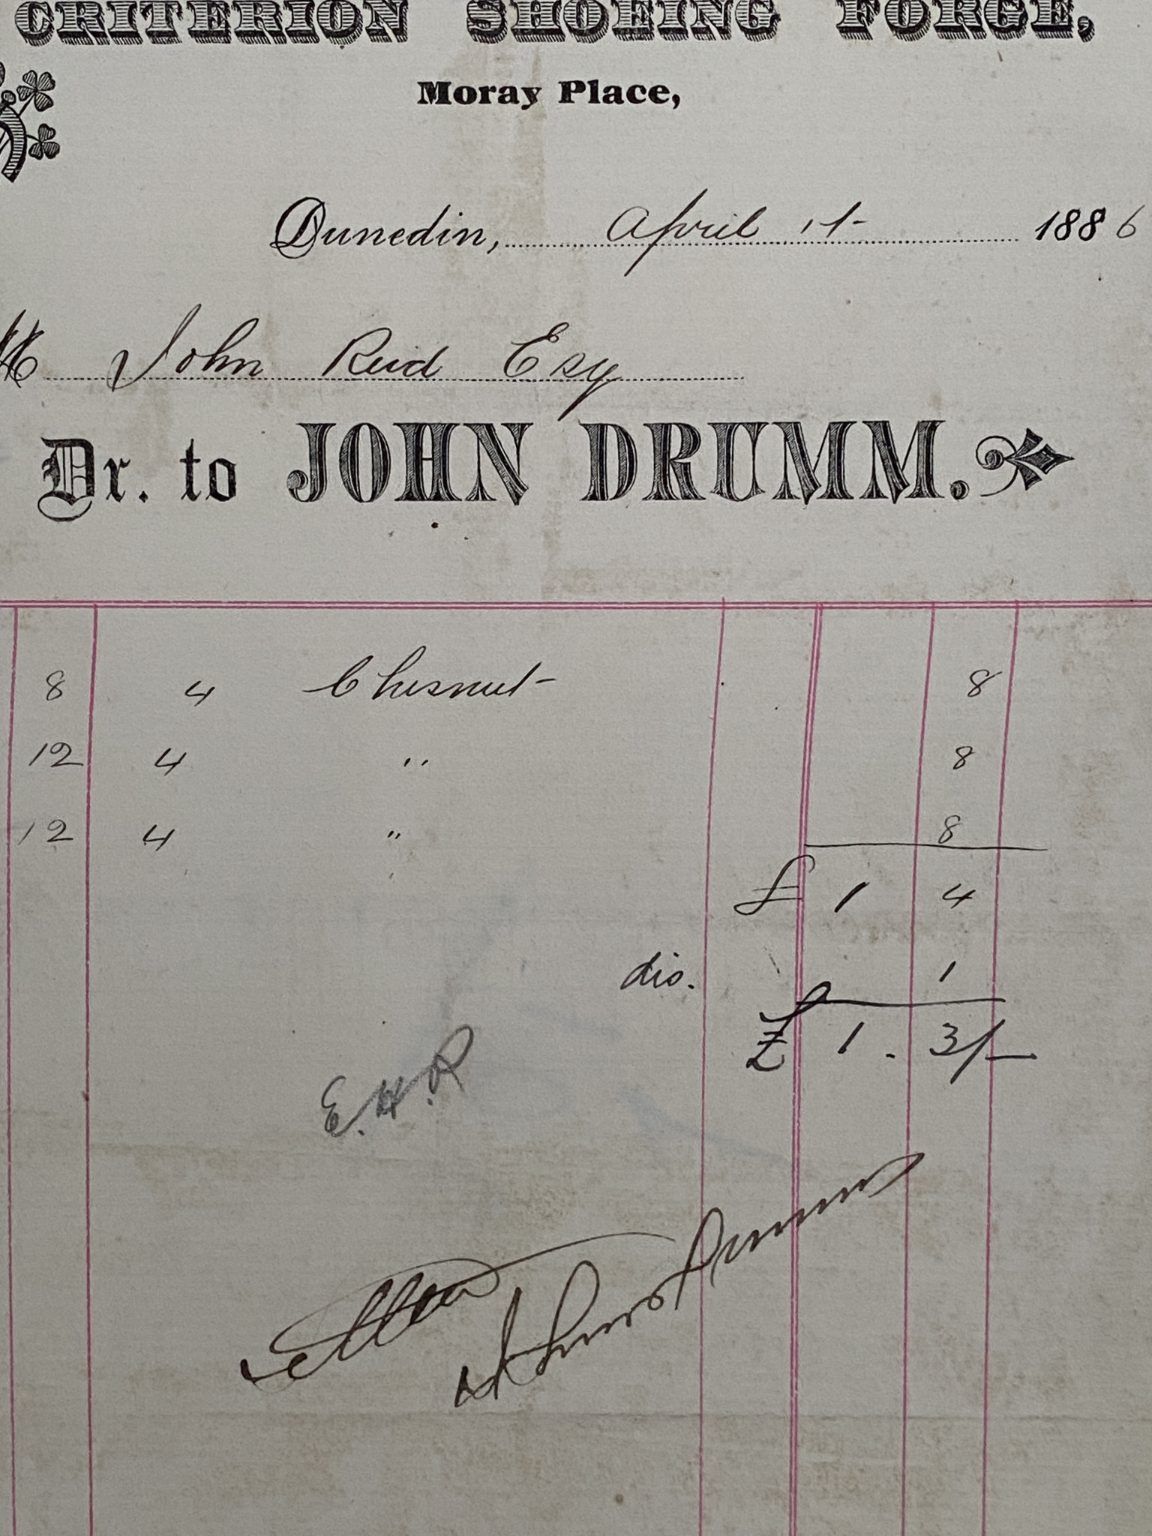 CRITERION SHOEING FORGE,
Moray Place,
Dunedin, April 1st 1886
M John Reid Esq
Dr. to JOHN DRUMM.
8 4 Chesnut 8
12 4 " 8
12 4 " 8
£ 1 4
dis. 1
£ 1 . 3/-
E.H.R
John Drumm